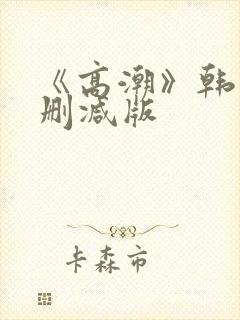 《高潮》韩
删减版
卡森市